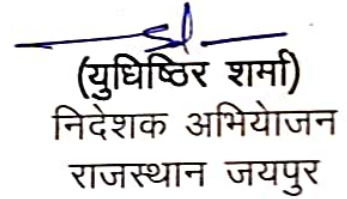 (युधिष्ठिर शर्मा)
निदेशक अभियोजन
राजस्थान जयपुर